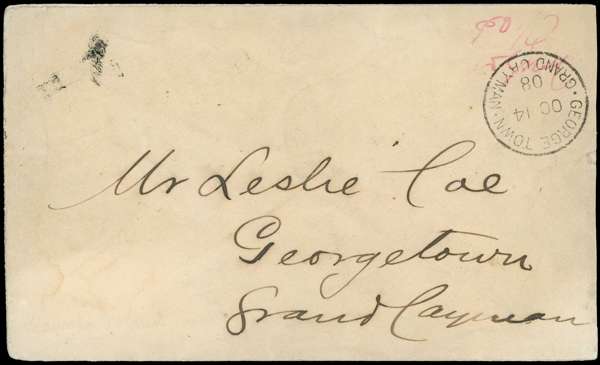 GRAND CAYMAN · GEORGE TOWN ·
OC 14
08
Mr Leslie Coe
Georgetown
Grand Cayman